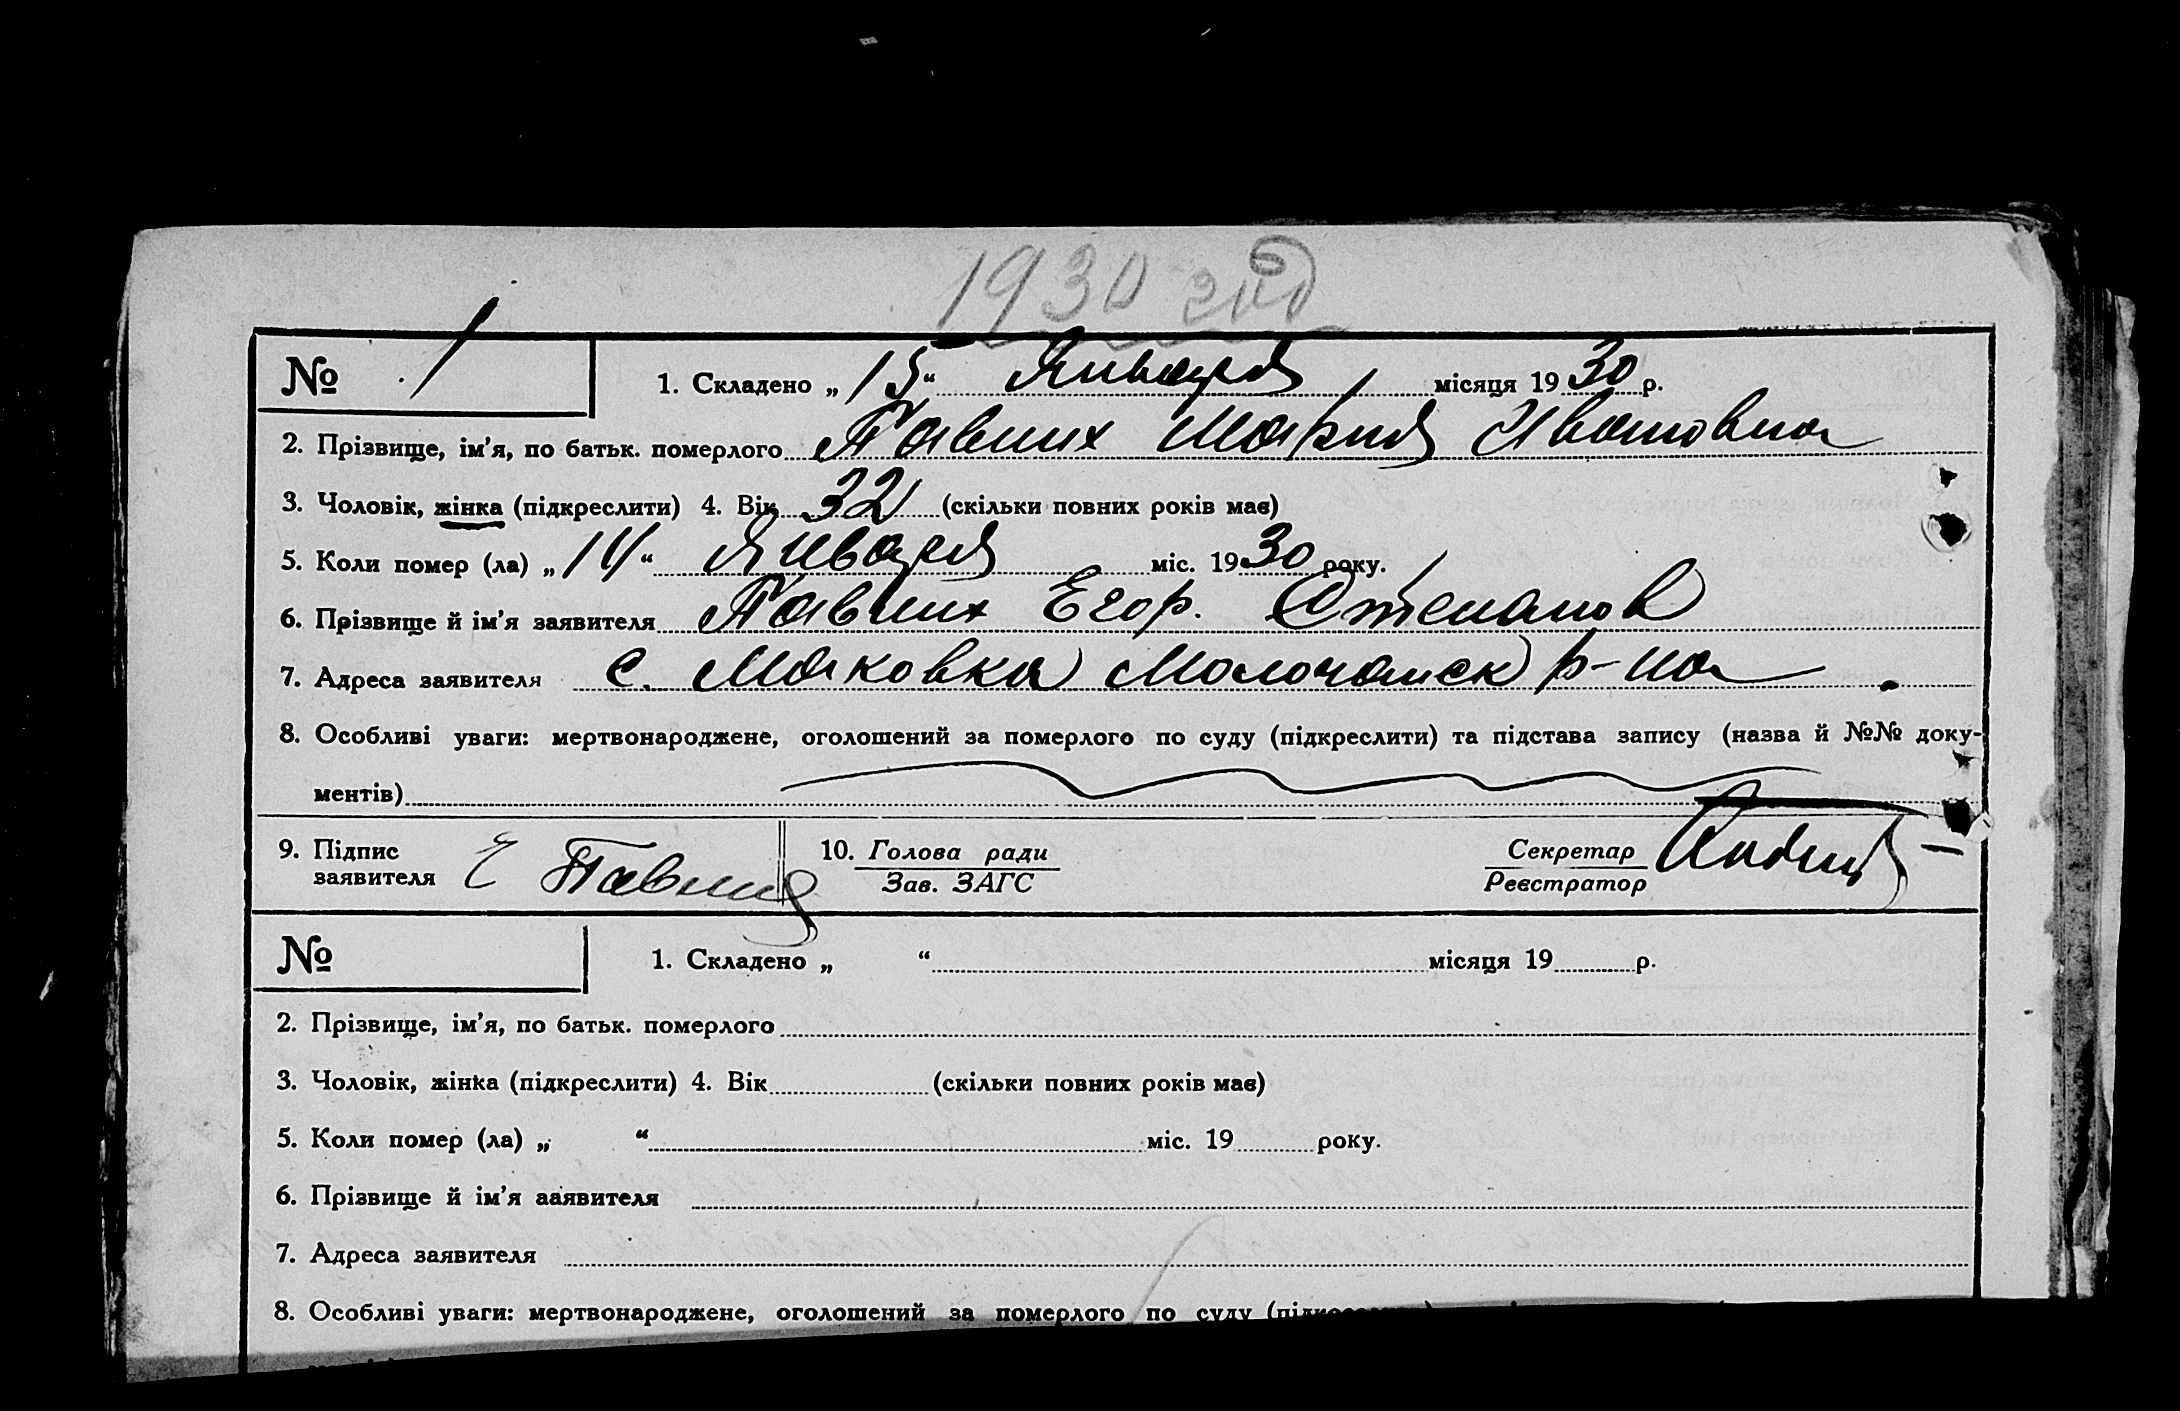 1930 год
№ 1
1. Складено „15“ Января місяця 1930 р.
2. Прізвище, ім’я, по батьк. померлого Павших Мария Ивановна
3. Чоловік, жінка (підкреслити) 4. Вік 32 (скільки повних років має)
5. Коли помер (ла) „14“ Января міс. 1930 року.
6. Прізвище й ім’я заявителя Павших Егор. Степанов
7. Адреса заявителя с. Маковка Молочанск р-на.
8. Особливі уваги: мертвонароджене, оголошений за померлого по суду (підкреслити) та підстава запису (назва й №№ доку-
ментів)
9. Підпис
заявителя Е Павших
10. Голова ради
Зав. ЗАГС
Секретар
Реєстратор
№
1. Складено „ “ місяця 19 р.
2. Прізвище, ім’я, по батьк. померлого
3. Чоловік, жінка (підкреслити) 4. Вік (скільки повних років має)
5. Коли помер (ла) „ “ міс. 19 року.
6. Прізвище й ім’я ааявителя
7. Адреса заявителя
8. Особливі уваги: мертвонароджене, оголошений за померлого по суду